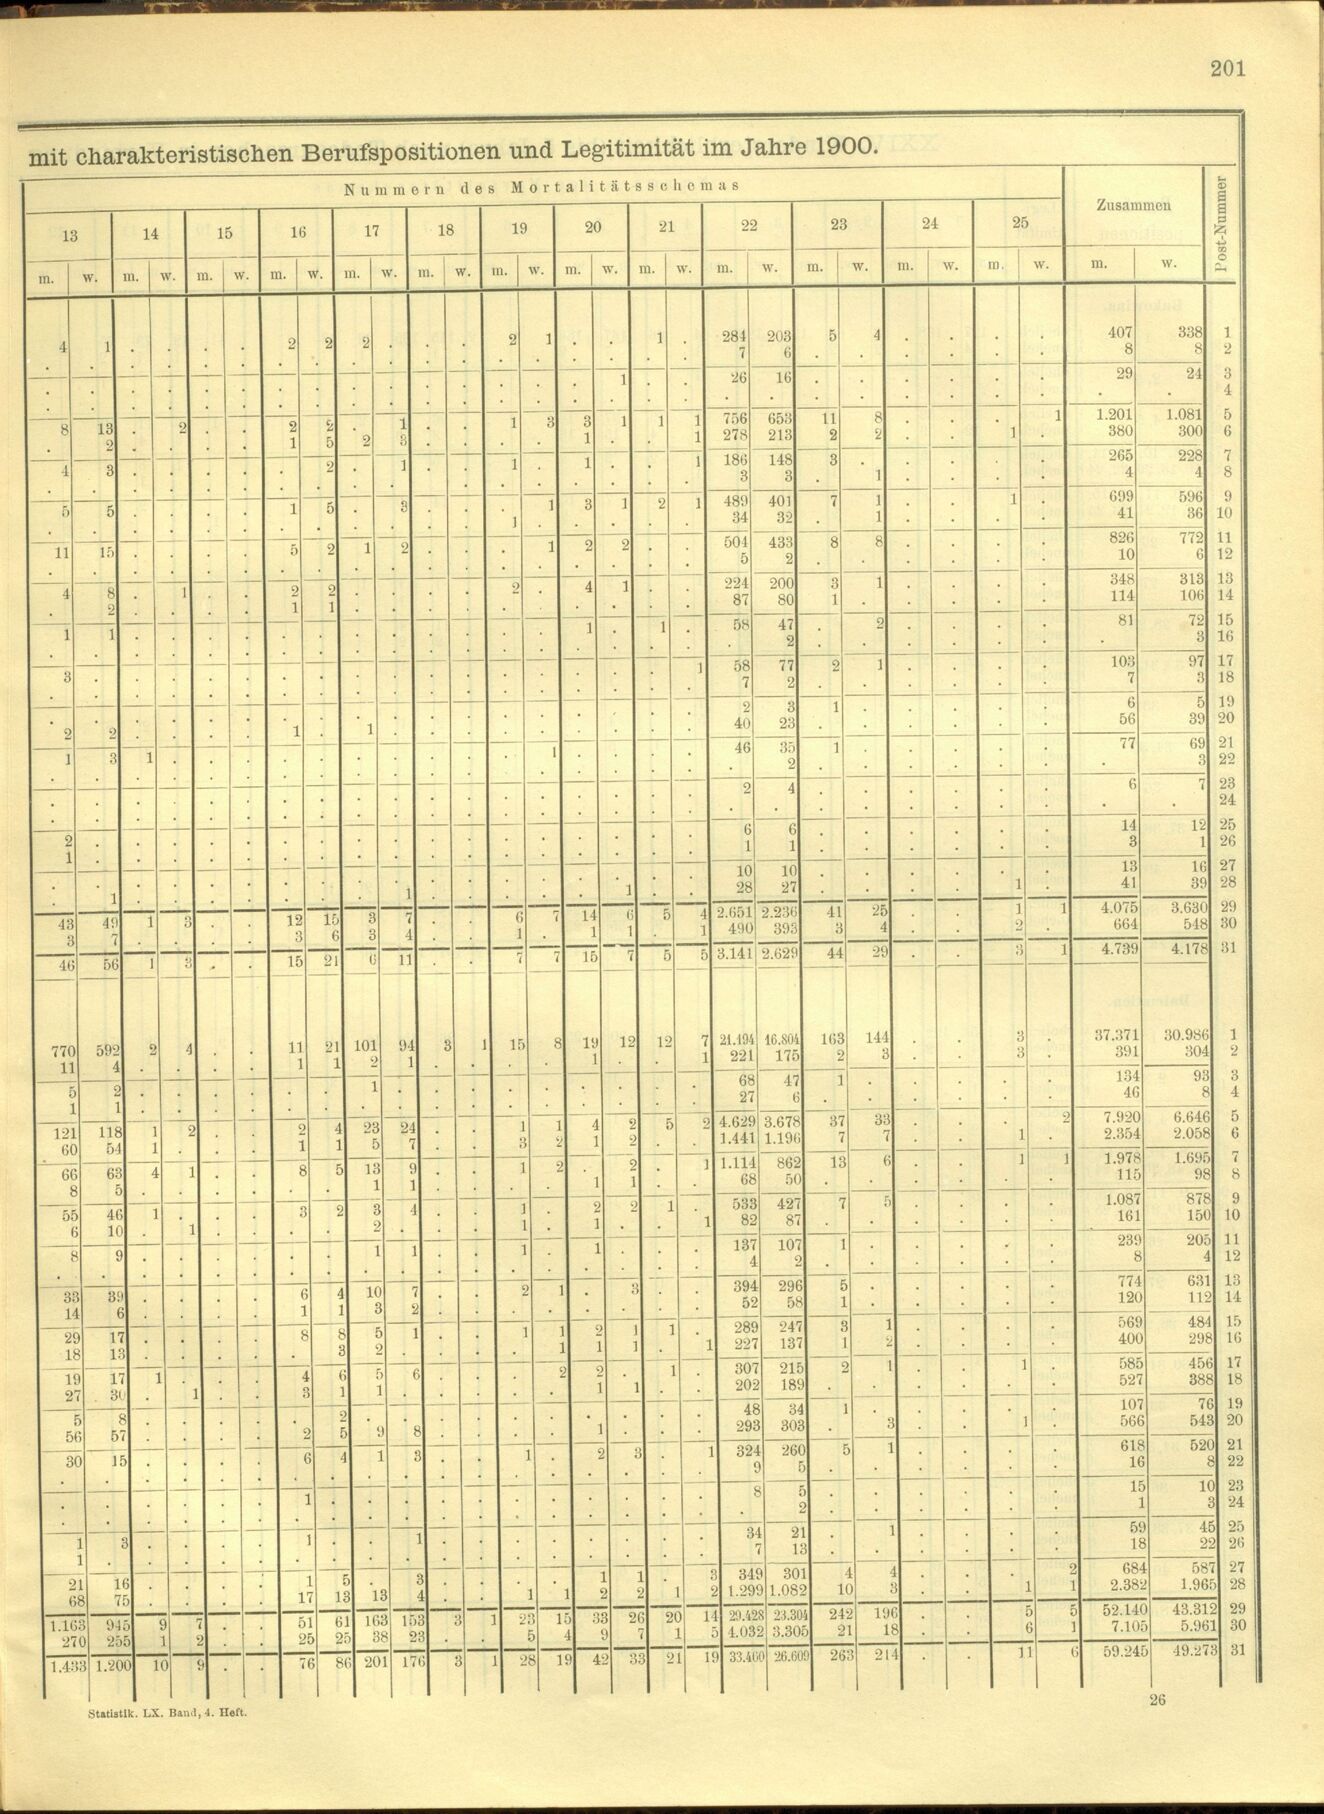 201
mit charakteristischen Berufspositionen und Legitimität im Jahre 1900.
Nummern des Mortalitätsschemas Zusammen Post-Nummer
13 14 15 16 17 18 19 20 21 22 23 24 25
m. w. m. w. m. w. m. w. m. w. m. w. m. w. m. w. m. w. m. w. m. w. m. w. m. w. m. w.
4 1 . . . . 2 2 2 . . . 2 1 . . 1 . 284 203 5 4 . . . . 407 338 1
. . . . . . . . . . . . . . . . . . 7 6 . . . . . . 8 8 2
. . . . . . . . . . . . . . . 1 . . 26 16 . . . . . . 29 24 3
. . . . . . . . . . . . . . . . . . . . . . . . . . . . 4
8 13 . 2 . . 2 2 . 1 . . 1 3 3 1 1 1 756 653 11 8 . . . 1 1.201 1.081 5
. 2 . . . . 1 5 2 3 . . . . 1 . . 1 278 213 2 2 . . 1 . 380 300 6
4 3 . . . . . 2 . 1 . . 1 . 1 . . 1 186 148 3 . . . . . 265 228 7
. . . . . . . . . . . . . . . . . . 3 3 . 1 . . . . 4 4 8
5 5 . . . . 1 5 . 3 . . . 1 3 1 2 1 489 401 7 1 . . 1 . 699 596 9
. . . . . . . . . . . . 1 . . . . . 34 32 . 1 . . . . 41 36 10
11 15 . . . . 5 2 1 2 . . . 1 2 2 . . 504 433 8 8 . . . . 826 772 11
. . . . . . . . . . . . . . . . . . 5 2 . . . . . . 10 6 12
4 8 . 1 . . 2 2 . . . . 2 . 4 1 . . 224 200 3 1 . . . . 348 313 13
. 2 . . . . 1 1 . . . . . . . . . . 87 80 1 . . . . . 114 106 14
1 1 . . . . . . . . . . . . 1 . 1 . 58 47 . 2 . . . . 81 72 15
. . . . . . . . . . . . . . . . . . . 2 . . . . . . . 3 16
3 . . . . . . . . . . . . . . . . 1 58 77 2 1 . . . . 103 97 17
. . . . . . . . . . . . . . . . . . 7 2 . . . . . . 7 3 18
. . . . . . . . . . . . . . . . . . 2 3 1 . . . . . 6 5 19
2 2 . . . . 1 . 1 . . . . . . . . . 40 23 . . . . . . 56 39 20
1 3 1 . . . . . . . . . . 1 . . . . 46 35 1 . . . . . 77 69 21
. . . . . . . . . . . . . . . . . . . 2 . . . . . . . 3 22
. . . . . . . . . . . . . . . . . . 2 4 . . . . . . 6 7 23
. . . . . . . . . . . . . . . . . . . . . . . . . . . . 24
2 . . . . . . . . . . . . . . . . . 6 6 . . . . . . 14 12 25
1 . . . . . . . . . . . . . . . . . 1 1 . . . . . . 3 1 26
. . . . . . . . . . . . . . . . . . 10 10 . . . . . . 13 16 27
. 1 . . . . . . . 1 . . . . . 1 . . 28 27 . . . . 1 . 41 39 28
43 49 1 3 . . 12 15 3 7 . . 6 7 14 6 5 4 2.651 2.236 41 25 . . 1 1 4.075 3.630 29
3 7 . . . . 3 6 3 4 . . 1 . 1 1 . 1 490 393 3 4 . . 2 . 664 548 30
46 56 1 3 . . 15 21 6 11 . . 7 7 15 7 5 5 3.141 2.629 44 29 . . 3 1 4.739 4.178 31
770 592 2 4 . . 11 21 101 94 3 1 15 8 19 12 12 7 21.494 16.804 163 144 . . 3 . 37.371 30.986 1
11 4 . . . . 1 1 2 1 . . . . 1 . . 1 221 175 2 3 . . 3 . 391 304 2
5 2 . . . . . . 1 . . . . . . . . . 68 47 1 . . . . . 134 93 3
1 1 . . . . . . . . . . . . . . . . 27 6 . . . . . . 46 8 4
121 118 1 2 . . 2 4 23 24 . . 1 1 4 2 5 2 4.629 3.678 37 33 . . . 2 7.920 6.646 5
60 54 1 . . . 1 1 5 7 . . 3 2 1 2 . . 1.441 1.196 7 7 . . 1 . 2.354 2.058 6
66 63 4 1 . . 8 5 13 9 . . 1 2 . 2 . 1 1.114 862 13 6 . . 1 1 1.978 1.695 7
8 5 . . . . . . 1 1 . . . . 1 1 . . 68 50 . . . . . . 115 98 8
55 46 1 . . . 3 2 3 4 . . 1 . 2 2 1 . 533 427 7 5 . . . . 1.087 878 9
6 10 . 1 . . . . 2 . . . 1 . 1 . . 1 82 87 . . . . . . 161 150 10
8 9 . . . . . . 1 1 . . 1 . 1 . . . 137 107 1 . . . . . 239 205 11
. . . . . . . . . . . . . . . . . . 4 2 . . . . . . 8 4 12
33 39 . . . . 6 4 10 7 . . 2 1 . 3 . . 394 296 5 . . . . . 774 631 13
14 6 . . . . 1 1 3 2 . . . . . . . . 52 58 1 . . . . . 120 112 14
29 17 . . . . 8 8 5 1 . . 1 1 2 1 1 . 289 247 3 1 . . . . 569 484 15
18 13 . . . . . 3 2 . . . . 1 1 1 . 1 227 137 1 2 . . . . 400 298 16
19 17 1 . . . 4 6 5 6 . . . 2 2 . 1 . 307 215 2 1 . . 1 . 585 456 17
27 30 . 1 . . 3 1 1 . . . . . 1 1 . . 202 189 . . . . . . 527 388 18
5 8 . . . . . 2 . . . . . . . . . . 48 34 1 . . . . . 107 76 19
56 57 . . . . 2 5 9 8 . . . . 1 . . . 293 303 . 3 . . 1 . 566 543 20
30 15 . . . . 6 4 1 3 . . 1 . 2 3 . 1 324 260 5 1 . . . . 618 520 21
. . . . . . . . . . . . . . . . . . 9 5 . . . . . . 16 8 22
. . . . . . 1 . . . . . . . . . . . 8 5 . . . . . . 15 10 23
. . . . . . . . . . . . . . . . . . . 2 . . . . . . 1 3 24
1 3 . . . . 1 . . 1 . . . . . . . . 34 21 . 1 . . . . 59 45 25
1 . . . . . . . . . . . . . . . . . 7 13 . . . . . . 18 22 26
21 16 . . . . 1 5 . 3 . . . . 1 1 . 3 349 301 4 4 . . . 2 684 587 27
68 75 . . . . 17 13 13 4 . . 1 1 2 2 1 2 1.299 1.082 10 3 . . 1 1 2.382 1.965 28
1.163 945 9 7 . . 51 61 163 153 3 1 23 15 33 26 20 14 29.428 23.304 242 196 . . 5 5 52.140 43.312 29
270 255 1 2 . . 25 25 38 23 . . 5 4 9 7 1 5 4.032 3.305 21 18 . . 6 1 7.105 5.961 30
1.433 1.200 10 9 . . 76 86 201 176 3 1 28 19 42 33 21 19 33.460 26.609 263 214 . . 11 6 59.245 49.273 31
Statistik. LX. Band, 4. Heft. 26